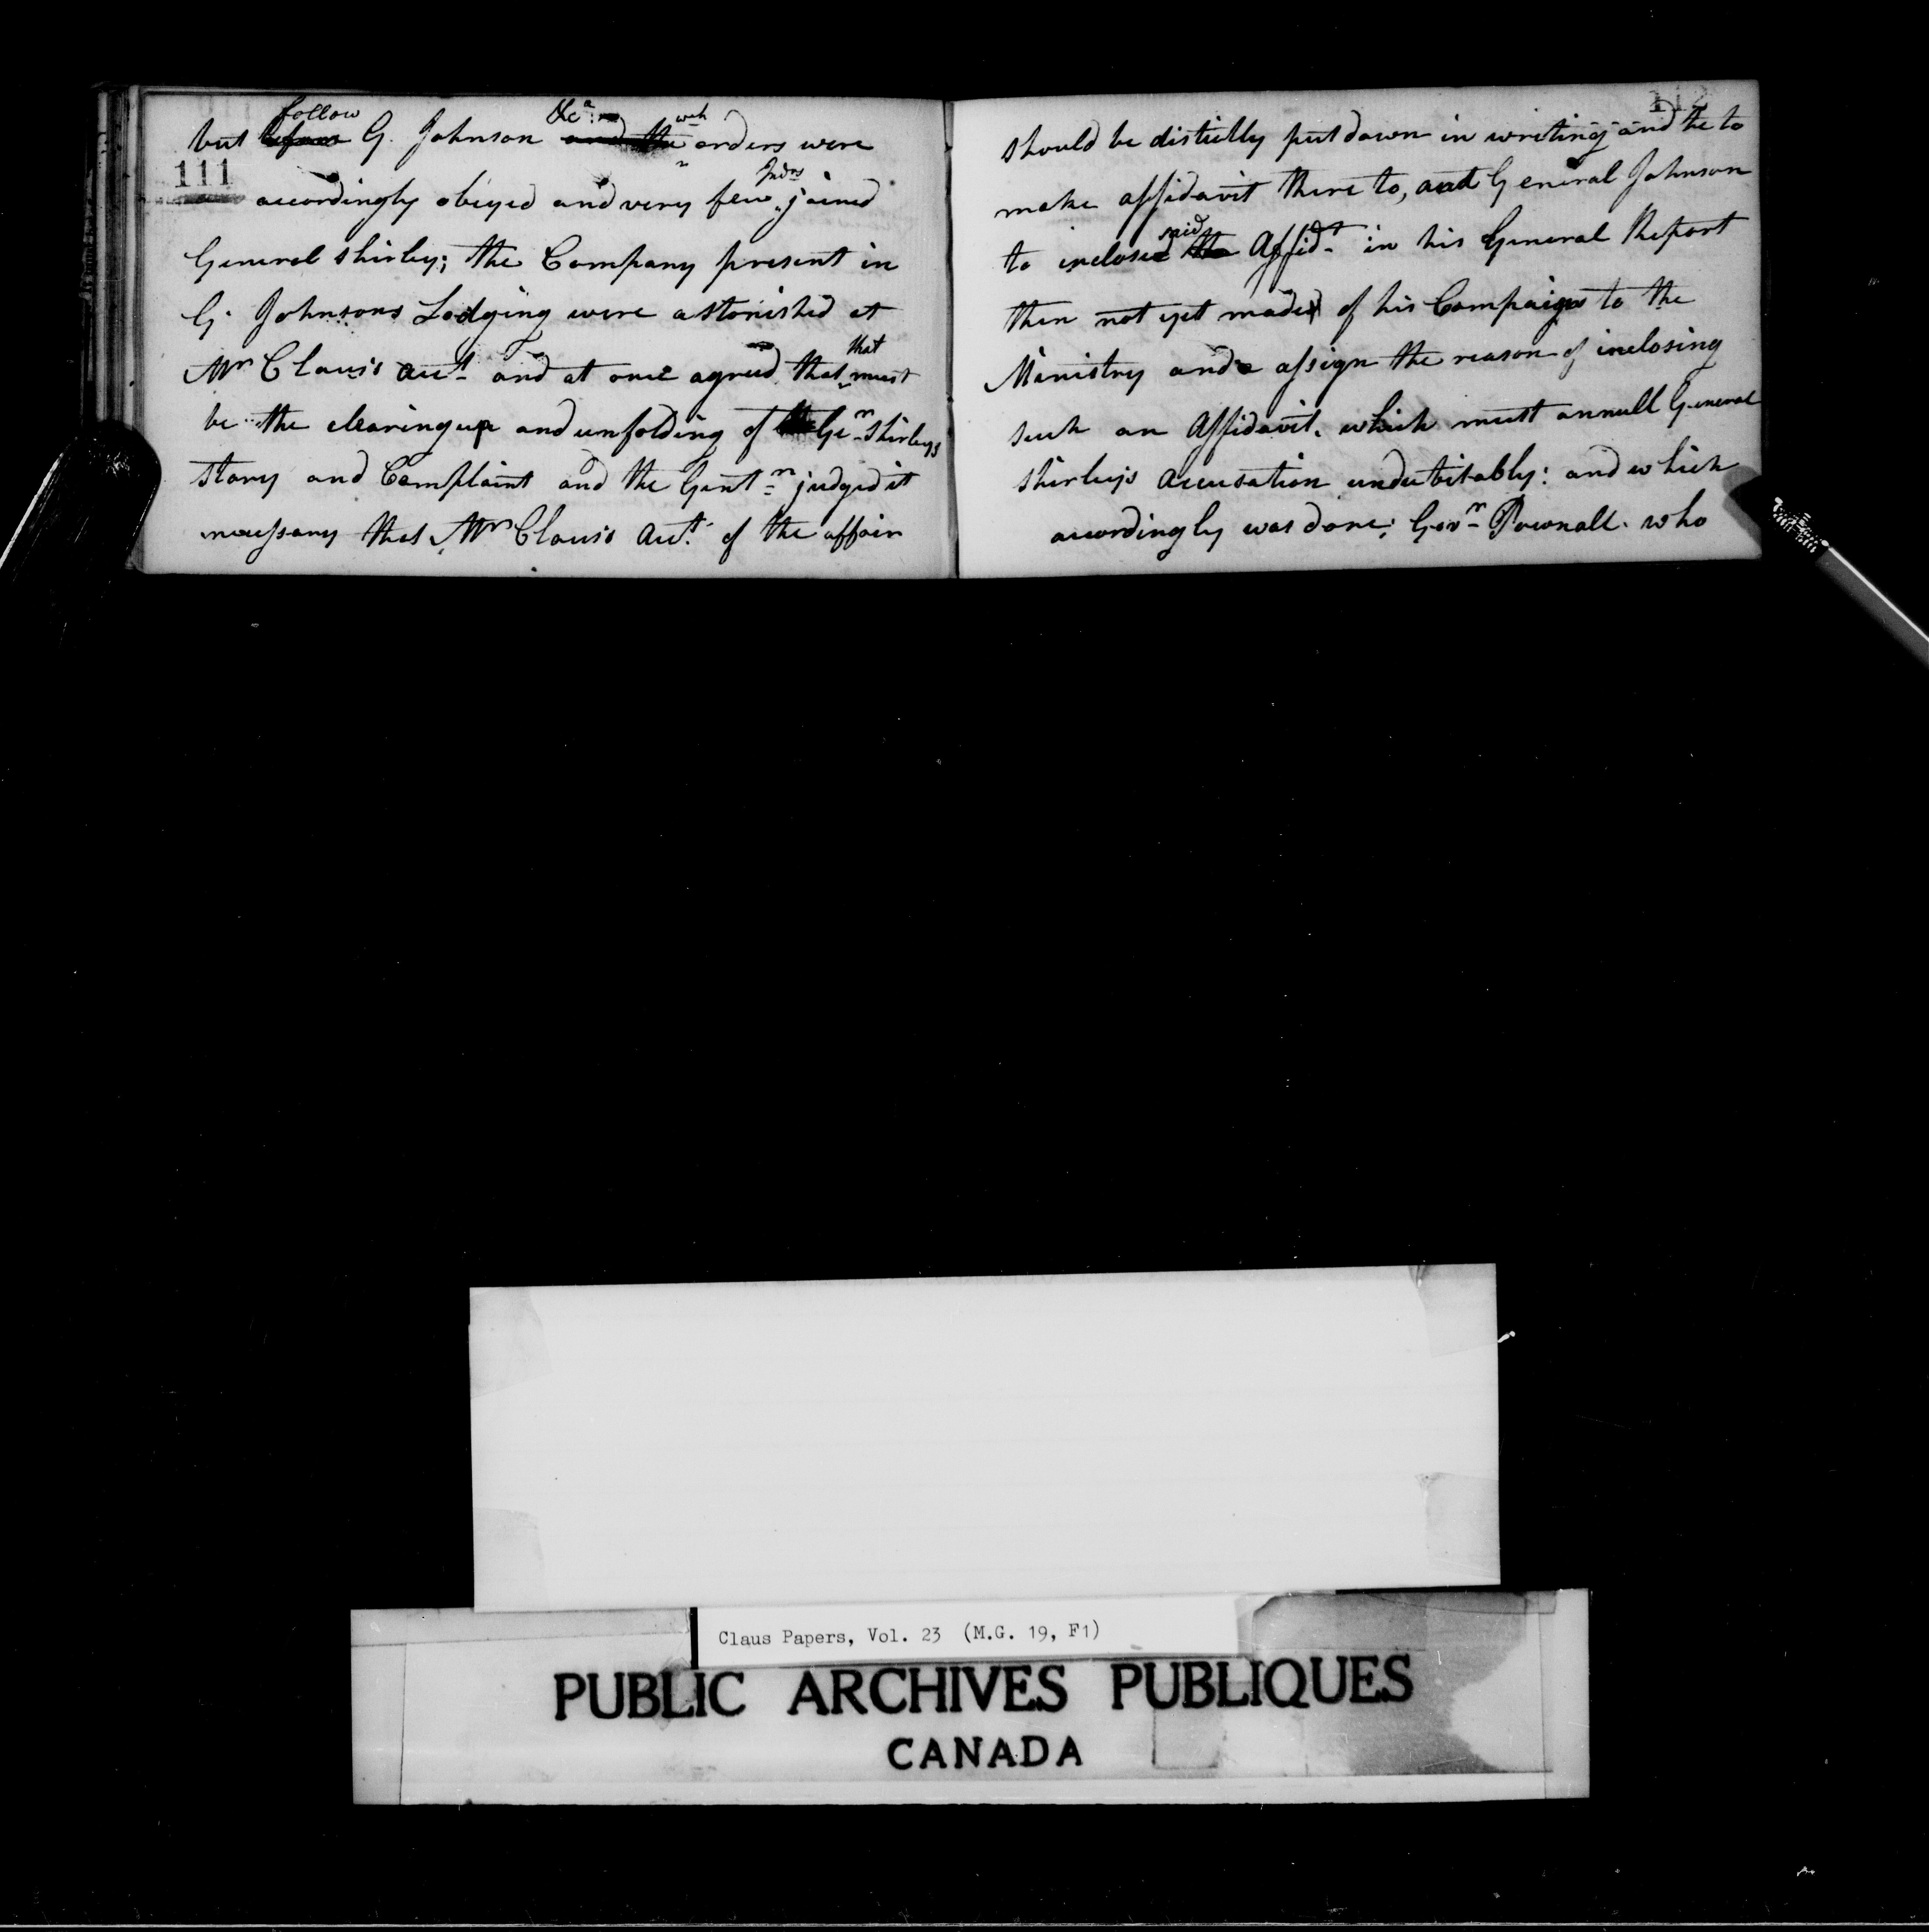 follow &c.a wch
but before G. Johnson and the orders were
111
Indns
accordingly obeyed and very few joined
General Shirley; the Company present in
G. Johnsons Lodging were astonished at
that
Mr Claus's acct. and at once agreed that must
be the clearing up and unfolding of the Gen Shirleys
story and Complaint and the Gentn judged it
necessary that Mr Claus's acct. of the affair
112
should be distictly put down in writing and he to
make affidavit thereto, and General Johnson
said
to inclose the Affidt in his General Report
then not yet made of his Campaign to the
Ministry and assign the reason of inclosing
such an Affidavit. which must annull General
Shirleys accusation undubitably: and which
accordingly was done; Govr Pownall who
Claus Papers, Vol. 23 (M.G. 19, F1)
PUBLIC ARCHIVES PUBLIQUES
CANADA